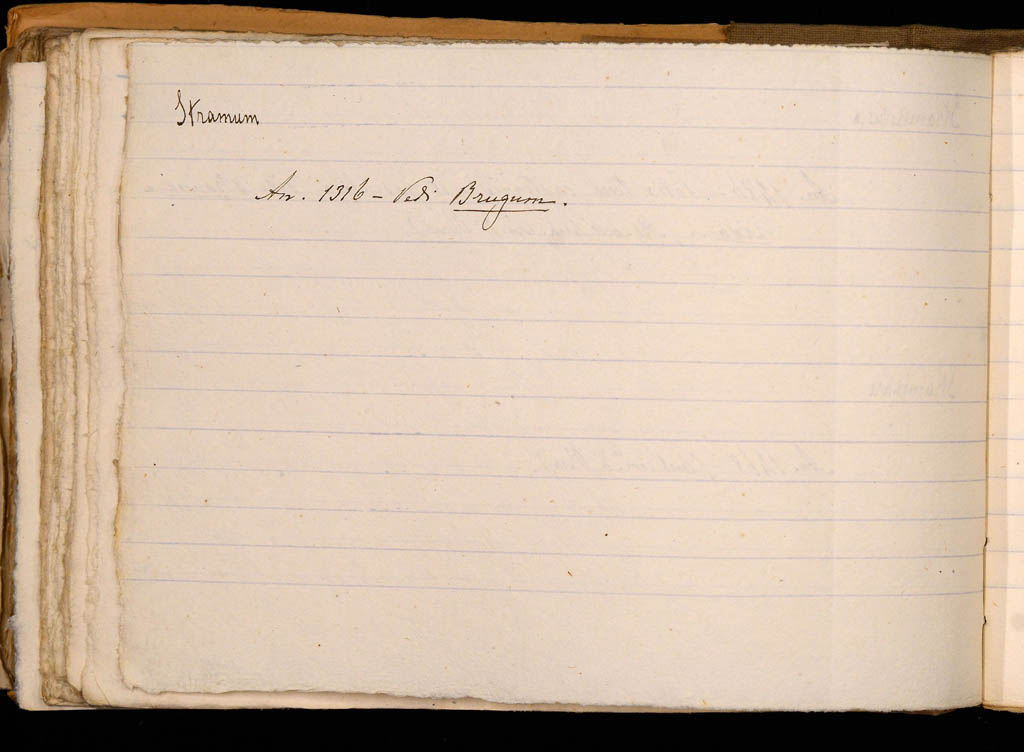 Stramum
An. 1316 - Vedi Brugum.